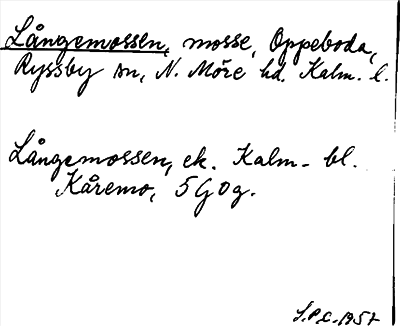 Långemossen, mosse, Oppeboda,
Ryssby sn, N. Möre hd. Kalm. l.
Långemossen, ek. Kalm. bl.
Kåremo, 5 G 0 g.
S.P.C. 1957